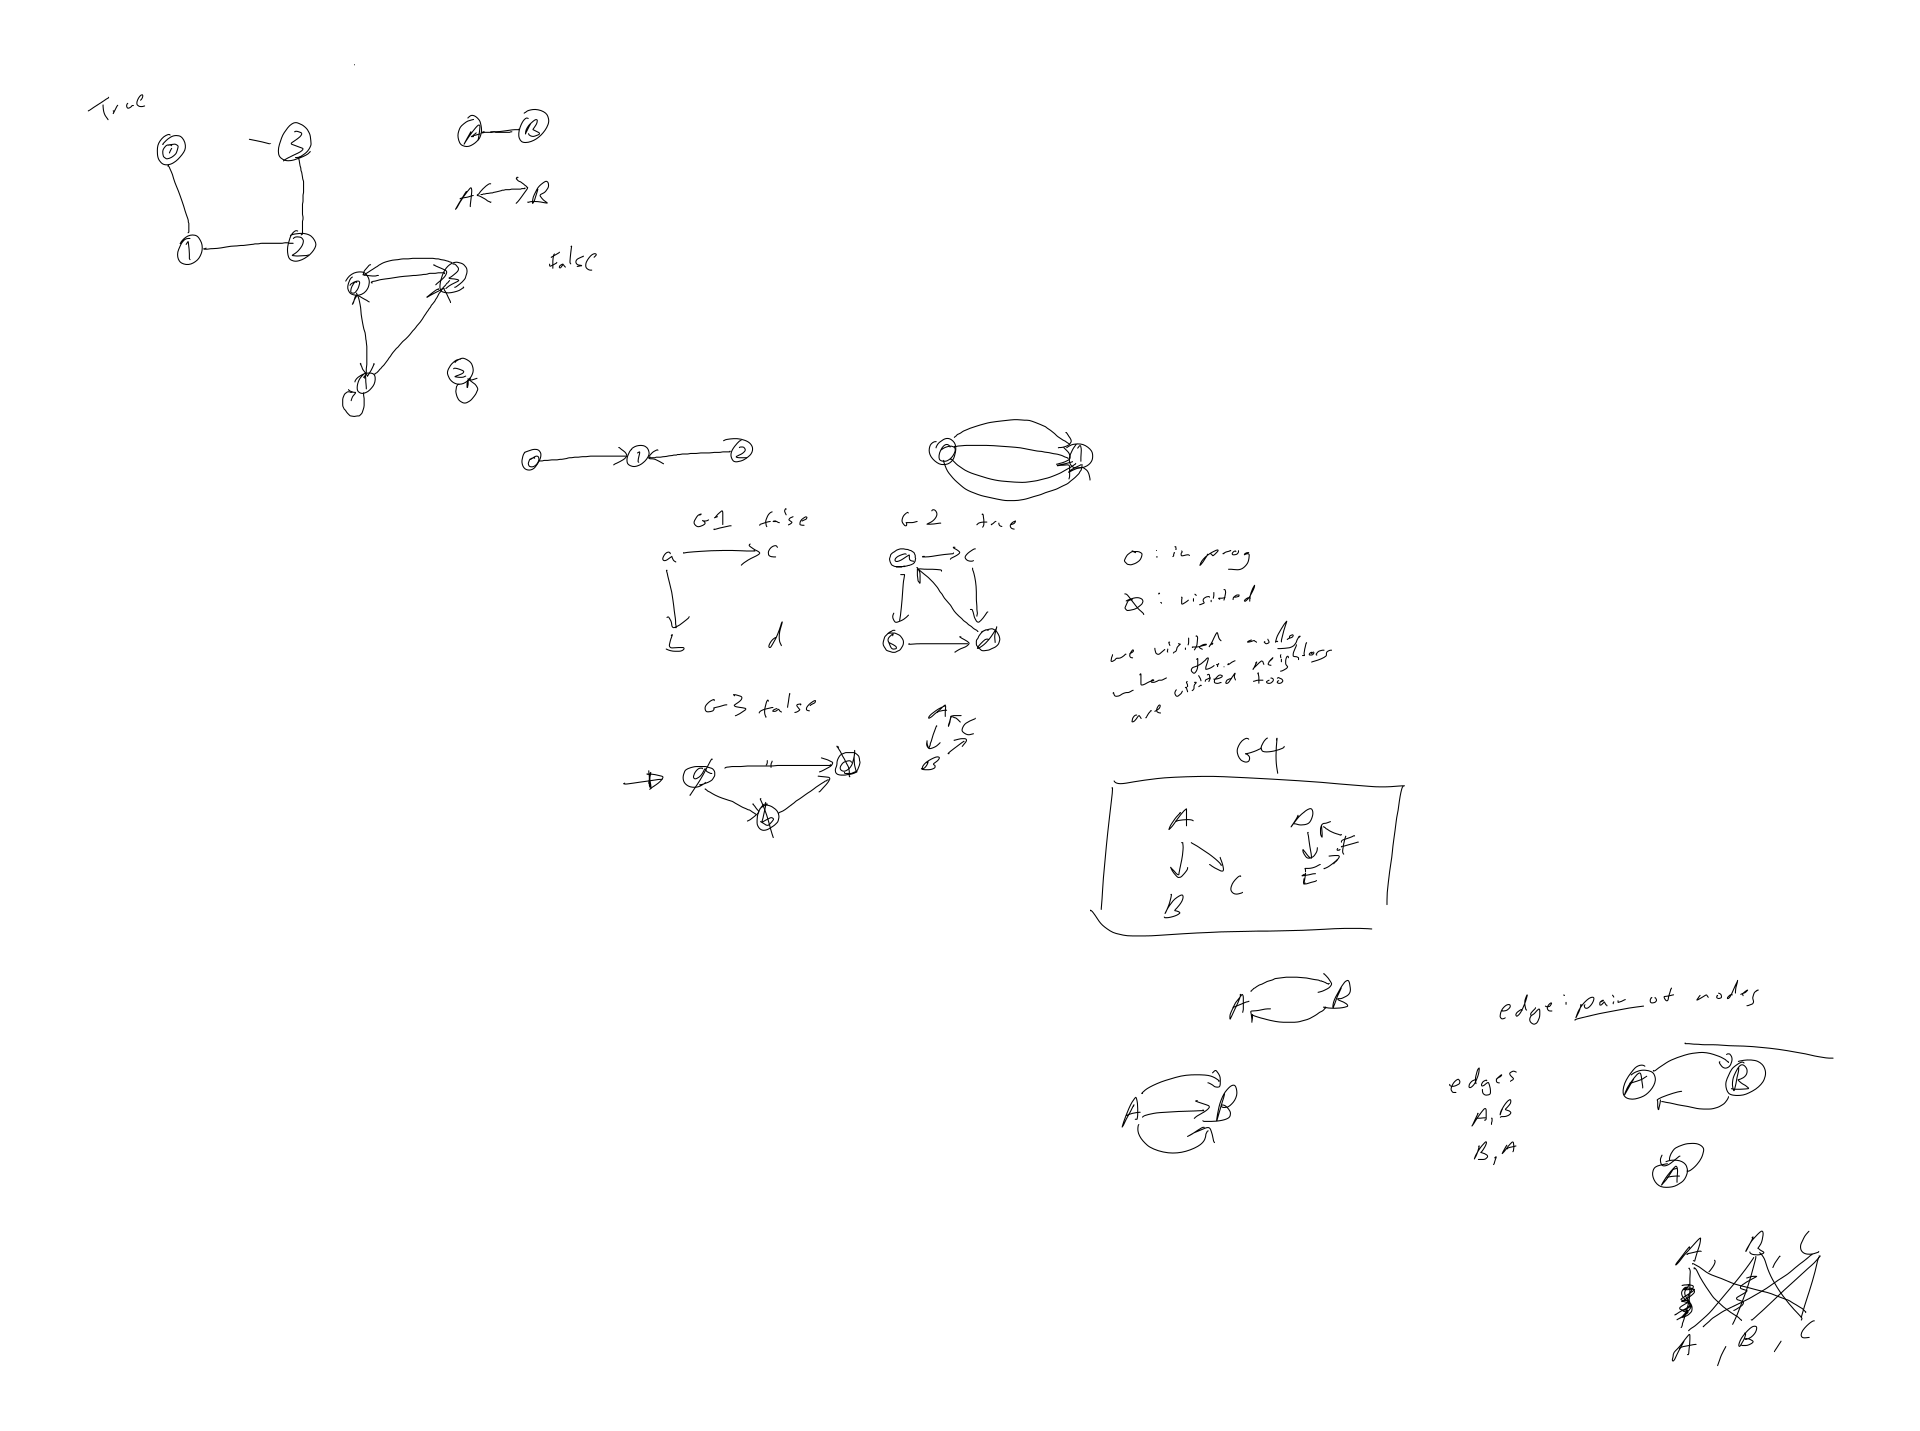 True
0 3
A B
A B
1 2
False
0 3
1 2
0 1 2
0 1
G1 false
G2 true
a c
a c
b d
b d
O : in prog
: visited
we visited nodes
when their neighbors
are visited too
G3 false
A
C
B
a d
b
G4
A D
F
E
C
B
A B
edge: pair of nodes
A B
edges
A, B
B, A
A B
A
A, B, C
A, B, C